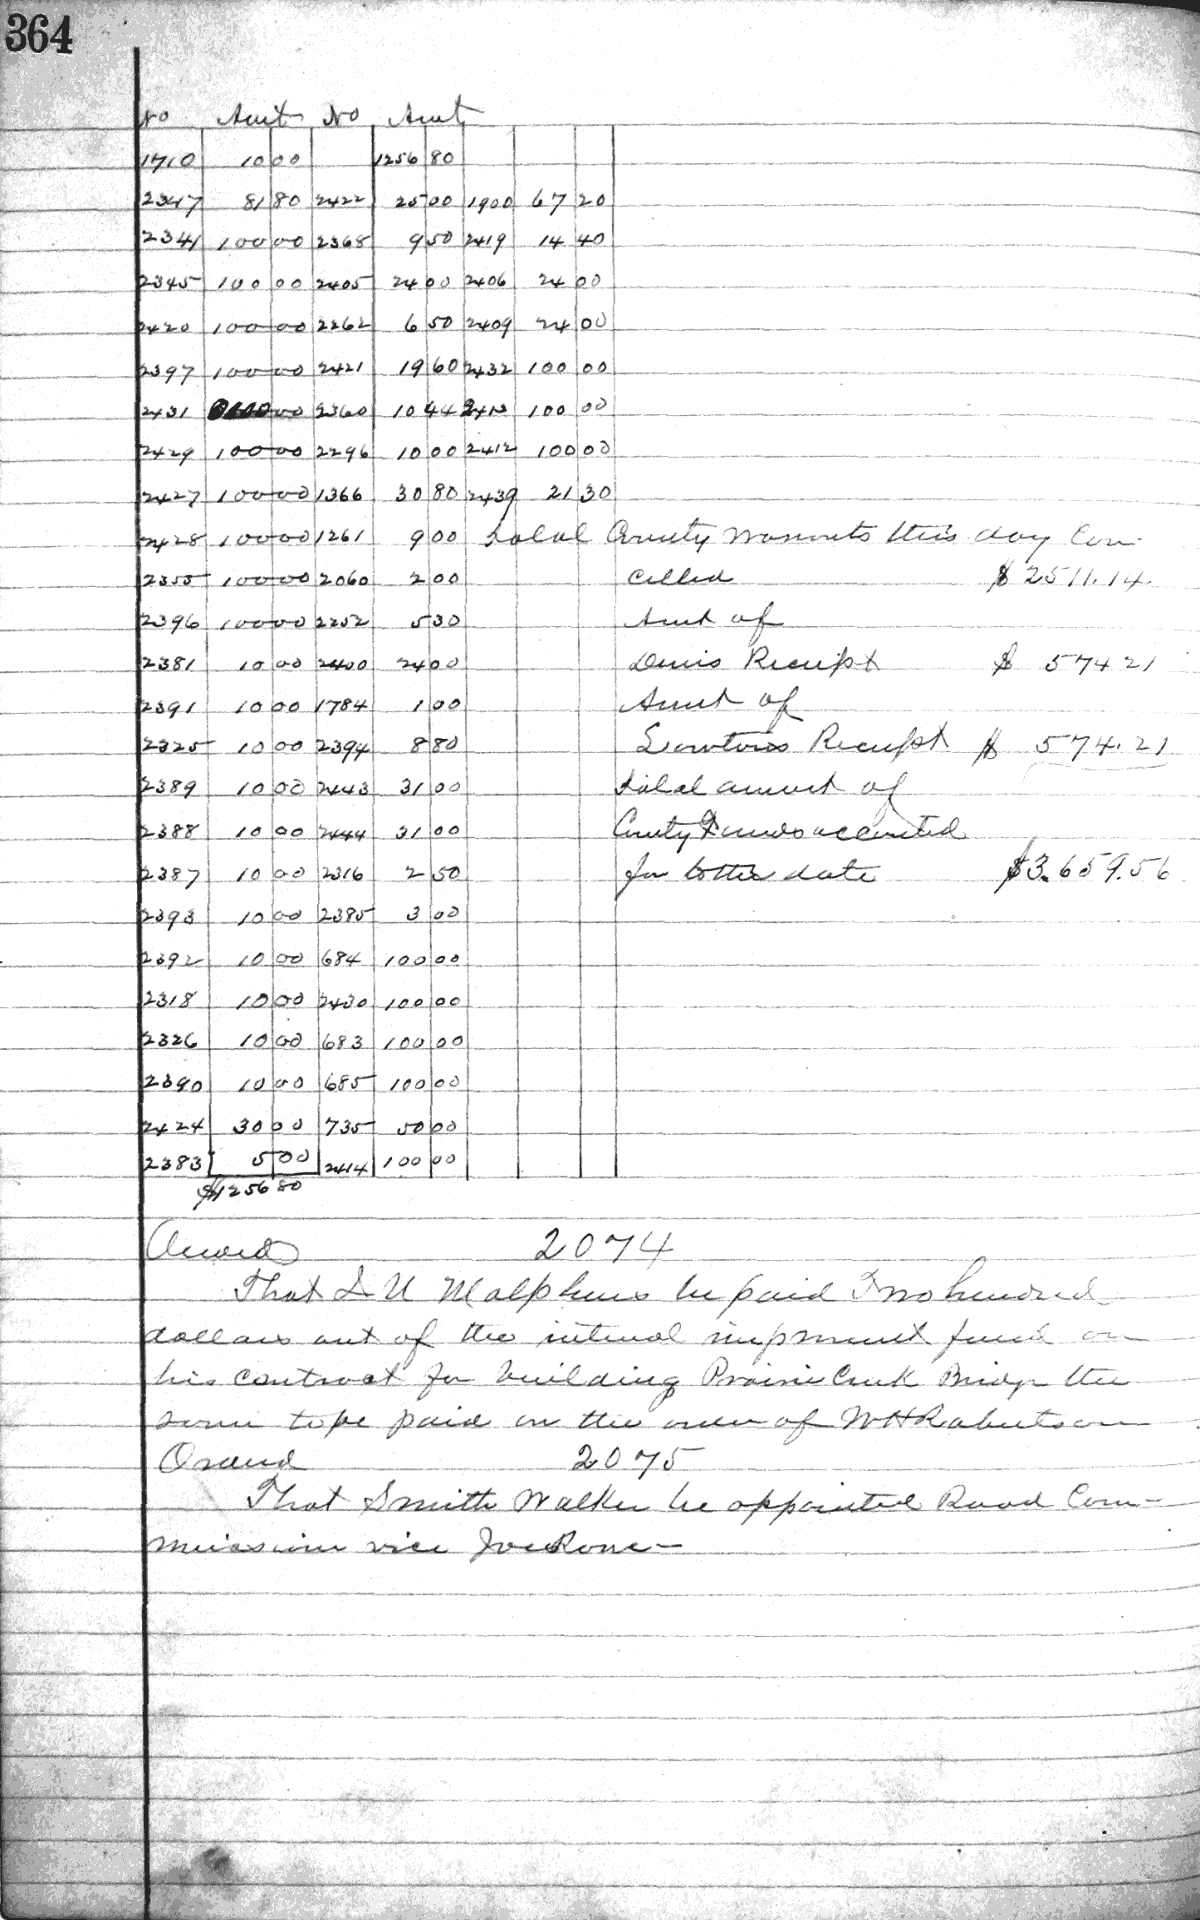 364
No Amt No Amt
1710 10 00 1256 80
2347 81 80 2422 25 00 1900 67 20
2341 100 00 2368 9 50 2419 14 40
2345 100 00 2405 24 00 2406 24 00
2420 100 00 2262 6 50 2409 24 00
2397 100 00 2421 19 60 2432 100 00
2431 100 00 2360 10 44 2413 100 00
2429 100 00 2296 10 00 2412 100 00
2427 100 00 1366 30 80 2439 21 30
2428 100 00 1261 9 00 Total County Warrants this day Can-
2355 100 00 2060 2 00 celled $2511.14.
2396 100 00 2252 5 30 Amt of
2381 10 00 2400 24 00 Receipt $ 574 21
2391 10 00 1784 1 00 Amt of
2325 10 00 2394 8 80 Receipt $ 574.21
2389 10 00 2443 31 00 total amount of
2388 10 00 2444 31 00 County Funds accounted
2387 10 00 2316 2 50 for to this date $3.659.56
2393 10 00 2385 3 00
2392 10 00 684 100 00
2318 10 00 2430 100 00
2326 10 00 683 100 00
2390 10 00 685 100 00
2424 30 00 735 50 00
2383 5 00 2414 100 00
$1256 80
Orderd 2074
That L U Malphurs be paid Two hundred
dollars out of the internal improvment fund on
his contract for building Prairie Creek Bridge the
same to be paid on the order of W H Robertson
Orderd 2075
That Smith Walker be appointed Road Com-
missioner vice Joe Rone—